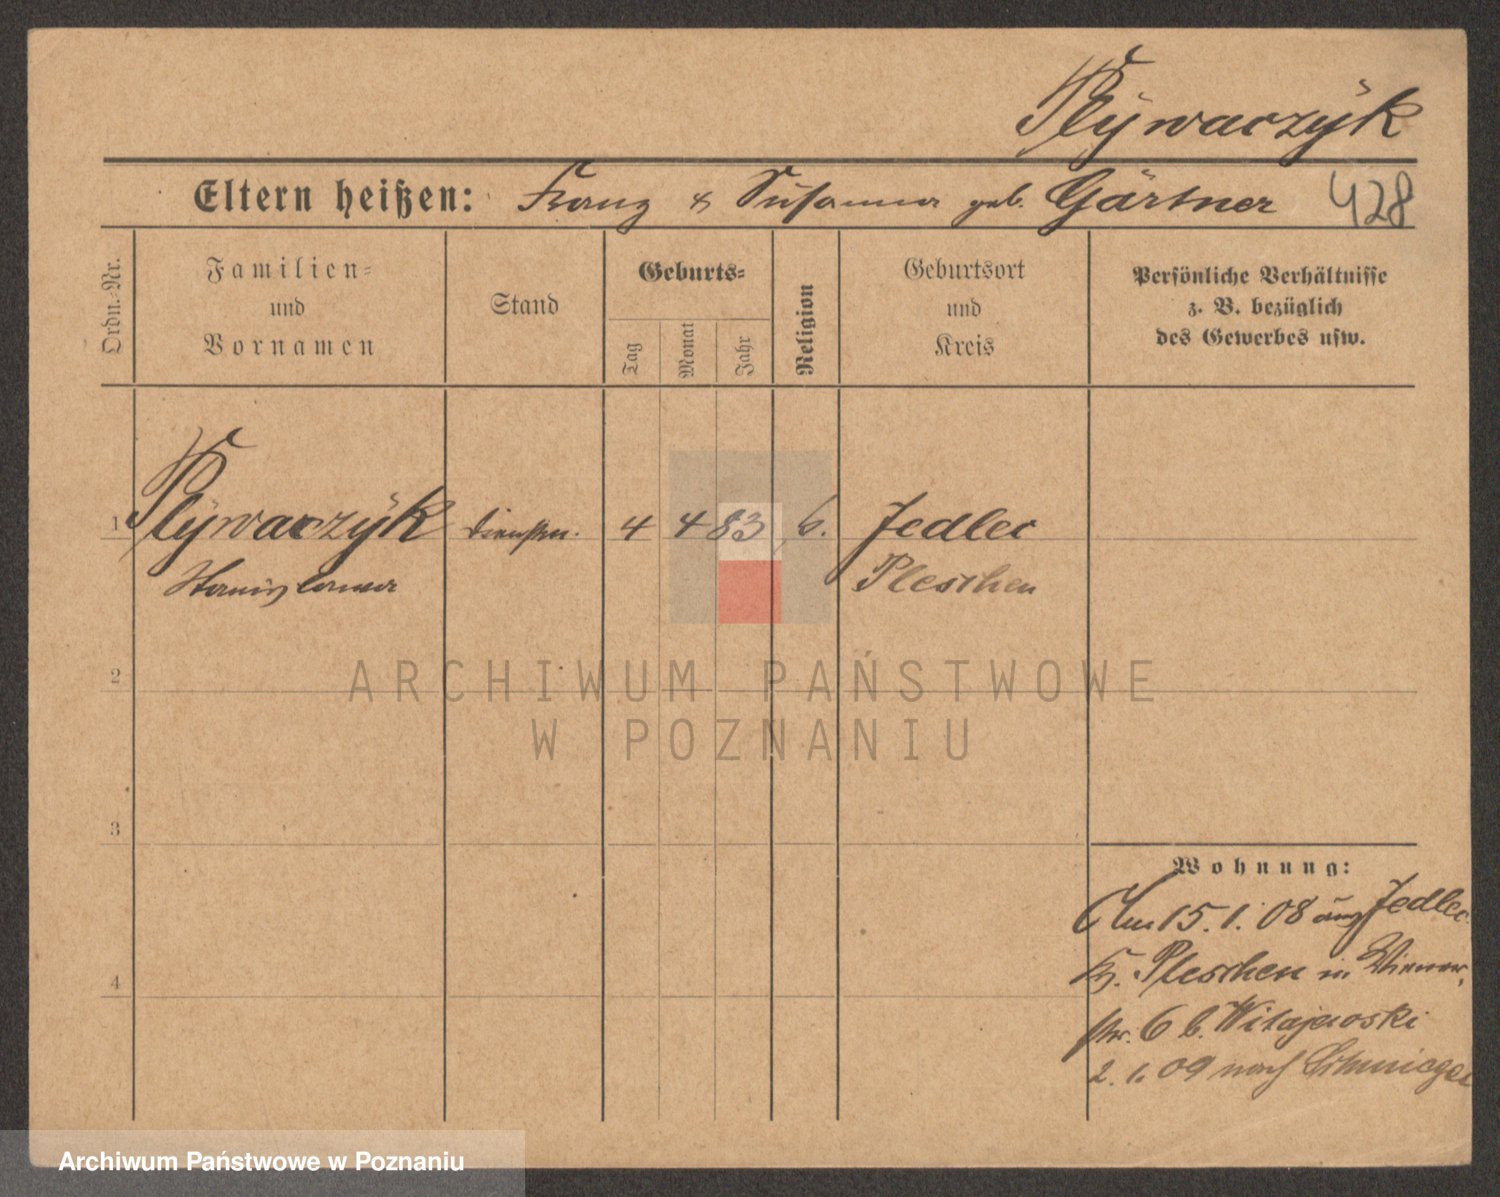 Plÿwaczÿk
Eltern heißen: Franz & Susanna geb. Gärtner 428
Ordn.-Nr.
Familien-
und
Vornamen
Stand
Geburts-
Tag
Monat
Jahr
Religion
Geburtsort
und
Kreis
Persönliche Verhältnisse
z. B. bezüglich
des Gewerbes usw.
1 Plÿwaczÿk 4 4 83 Jedlec
Pleschen
ARCHIWUM PAŃSTWOWE
W POZNANIU
2
3
4
Wohnung:
Am 15.1.08 aus Jedlec
Kr. Pleschen in Wiener
str. 6 b. Witajewski
2.1.09 nach Schmiegel
Archiwum Państwowe w Poznaniu